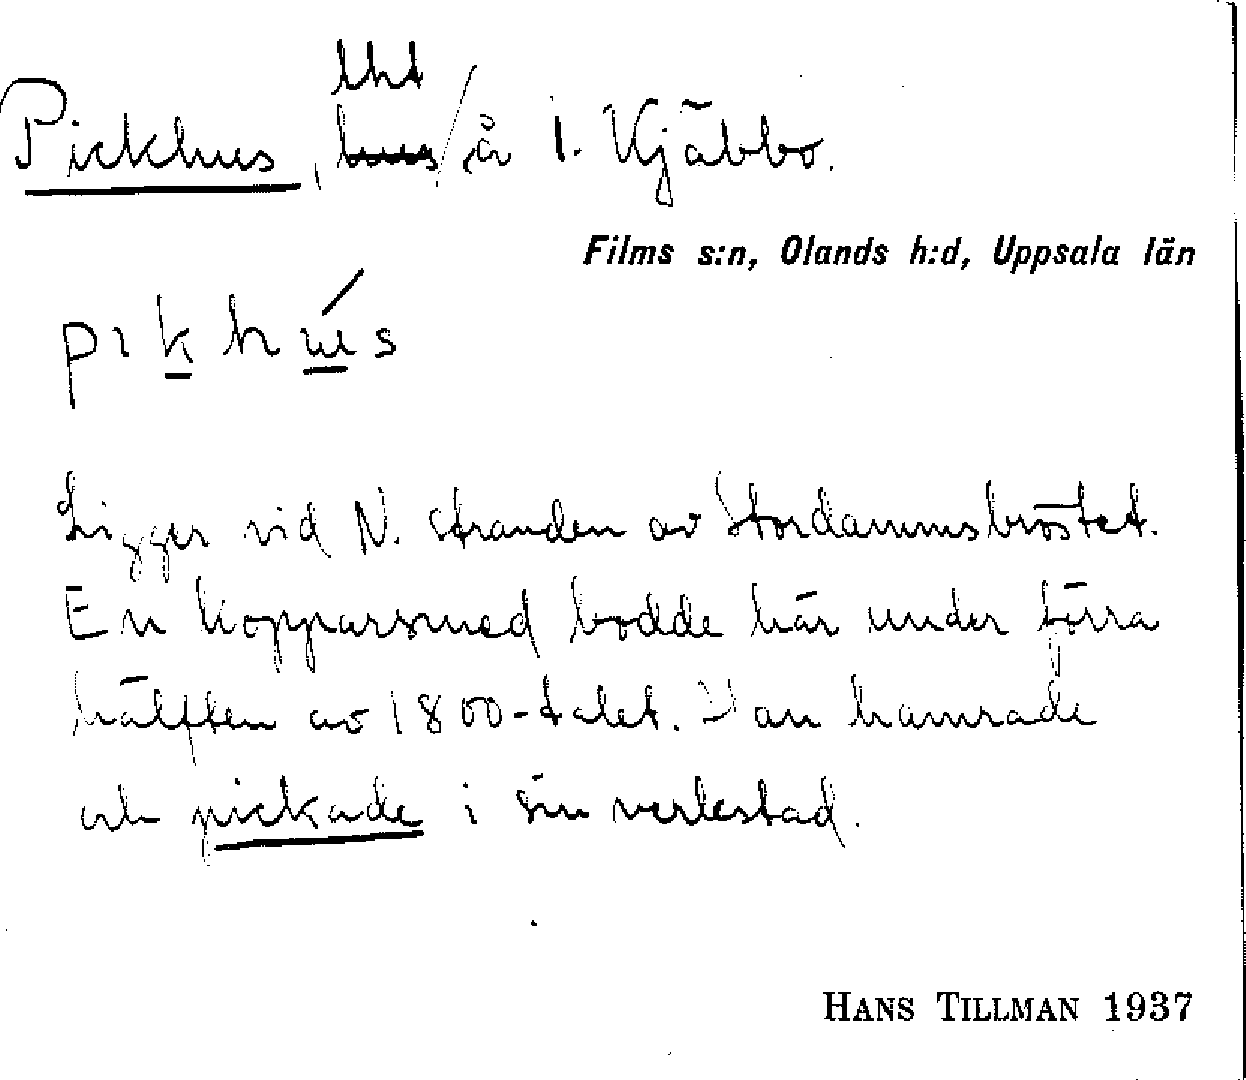 lht
Pickhus, hus/å 1. Kjäbbo.
Films s:n, Olands h:d, Uppsala län
pikhús
Ligger vid N. stranden av Stordammsbröstet.
En kopparsmed bodde här under förra
hälften av 1800-talet. Han hamrade
och pickade i sin verkstad.
HANS TILLMAN 1937